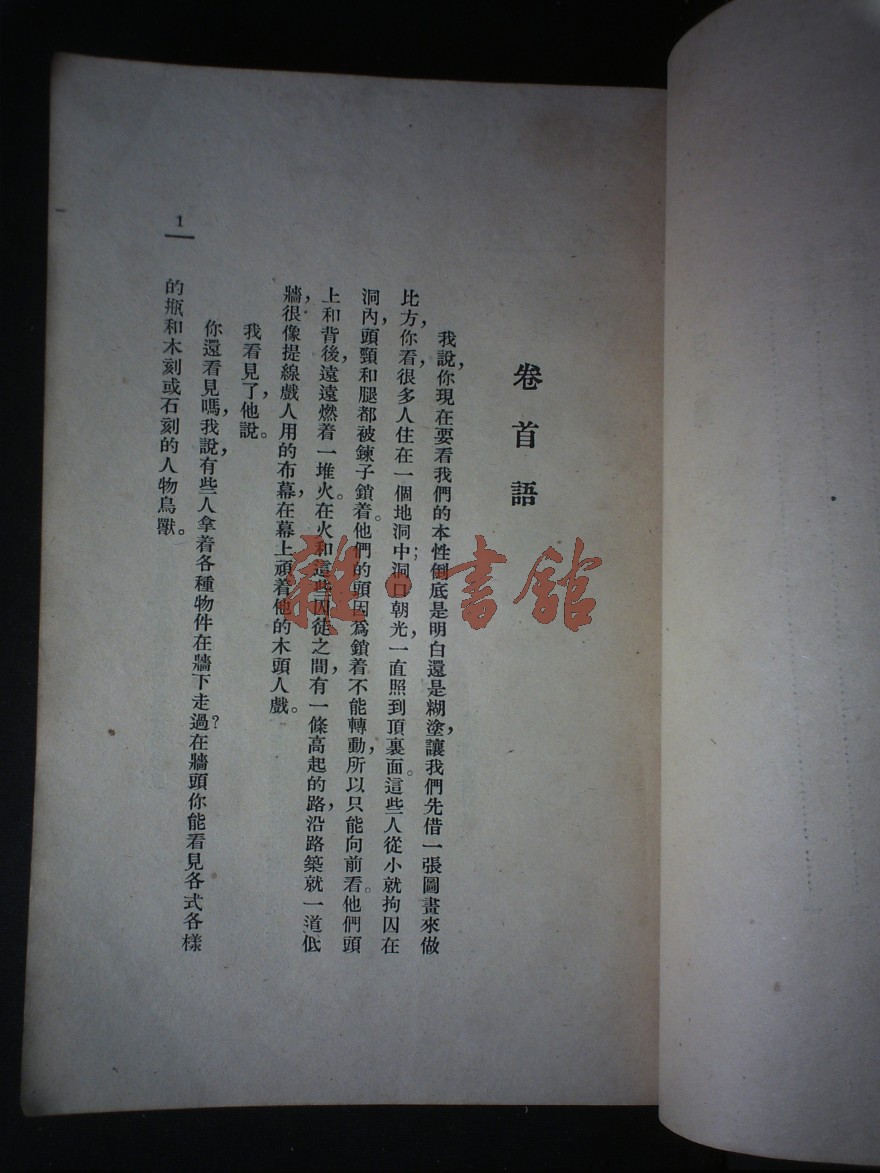 卷首語
我說，你現在要看我們的本性倒底是明白還是糊塗，讓我們先借一張圖畫來做
比方，你看，很多人住在一個地洞中；洞口朝光，一直照到頂裏面。這些人從小就拘囚在
洞內，頭頸和腿都被鍊子鎖着。他們的頭因爲鎖着不能轉動，所以只能向前看。他們頭
上和背後，遠遠燃着一堆火。在火和這些囚徒之間，有一條高起的路，沿路築就一道低
牆，很像提線戲人用的布幕，在幕上頑着他的木頭人戲。
我看見了，他說。
你還看見嗎，我說，有些人拿着各種物件在牆下走過？在牆頭你能看見各式各樣
的瓶和木刻或石刻的人物鳥獸。
1
雜·書館